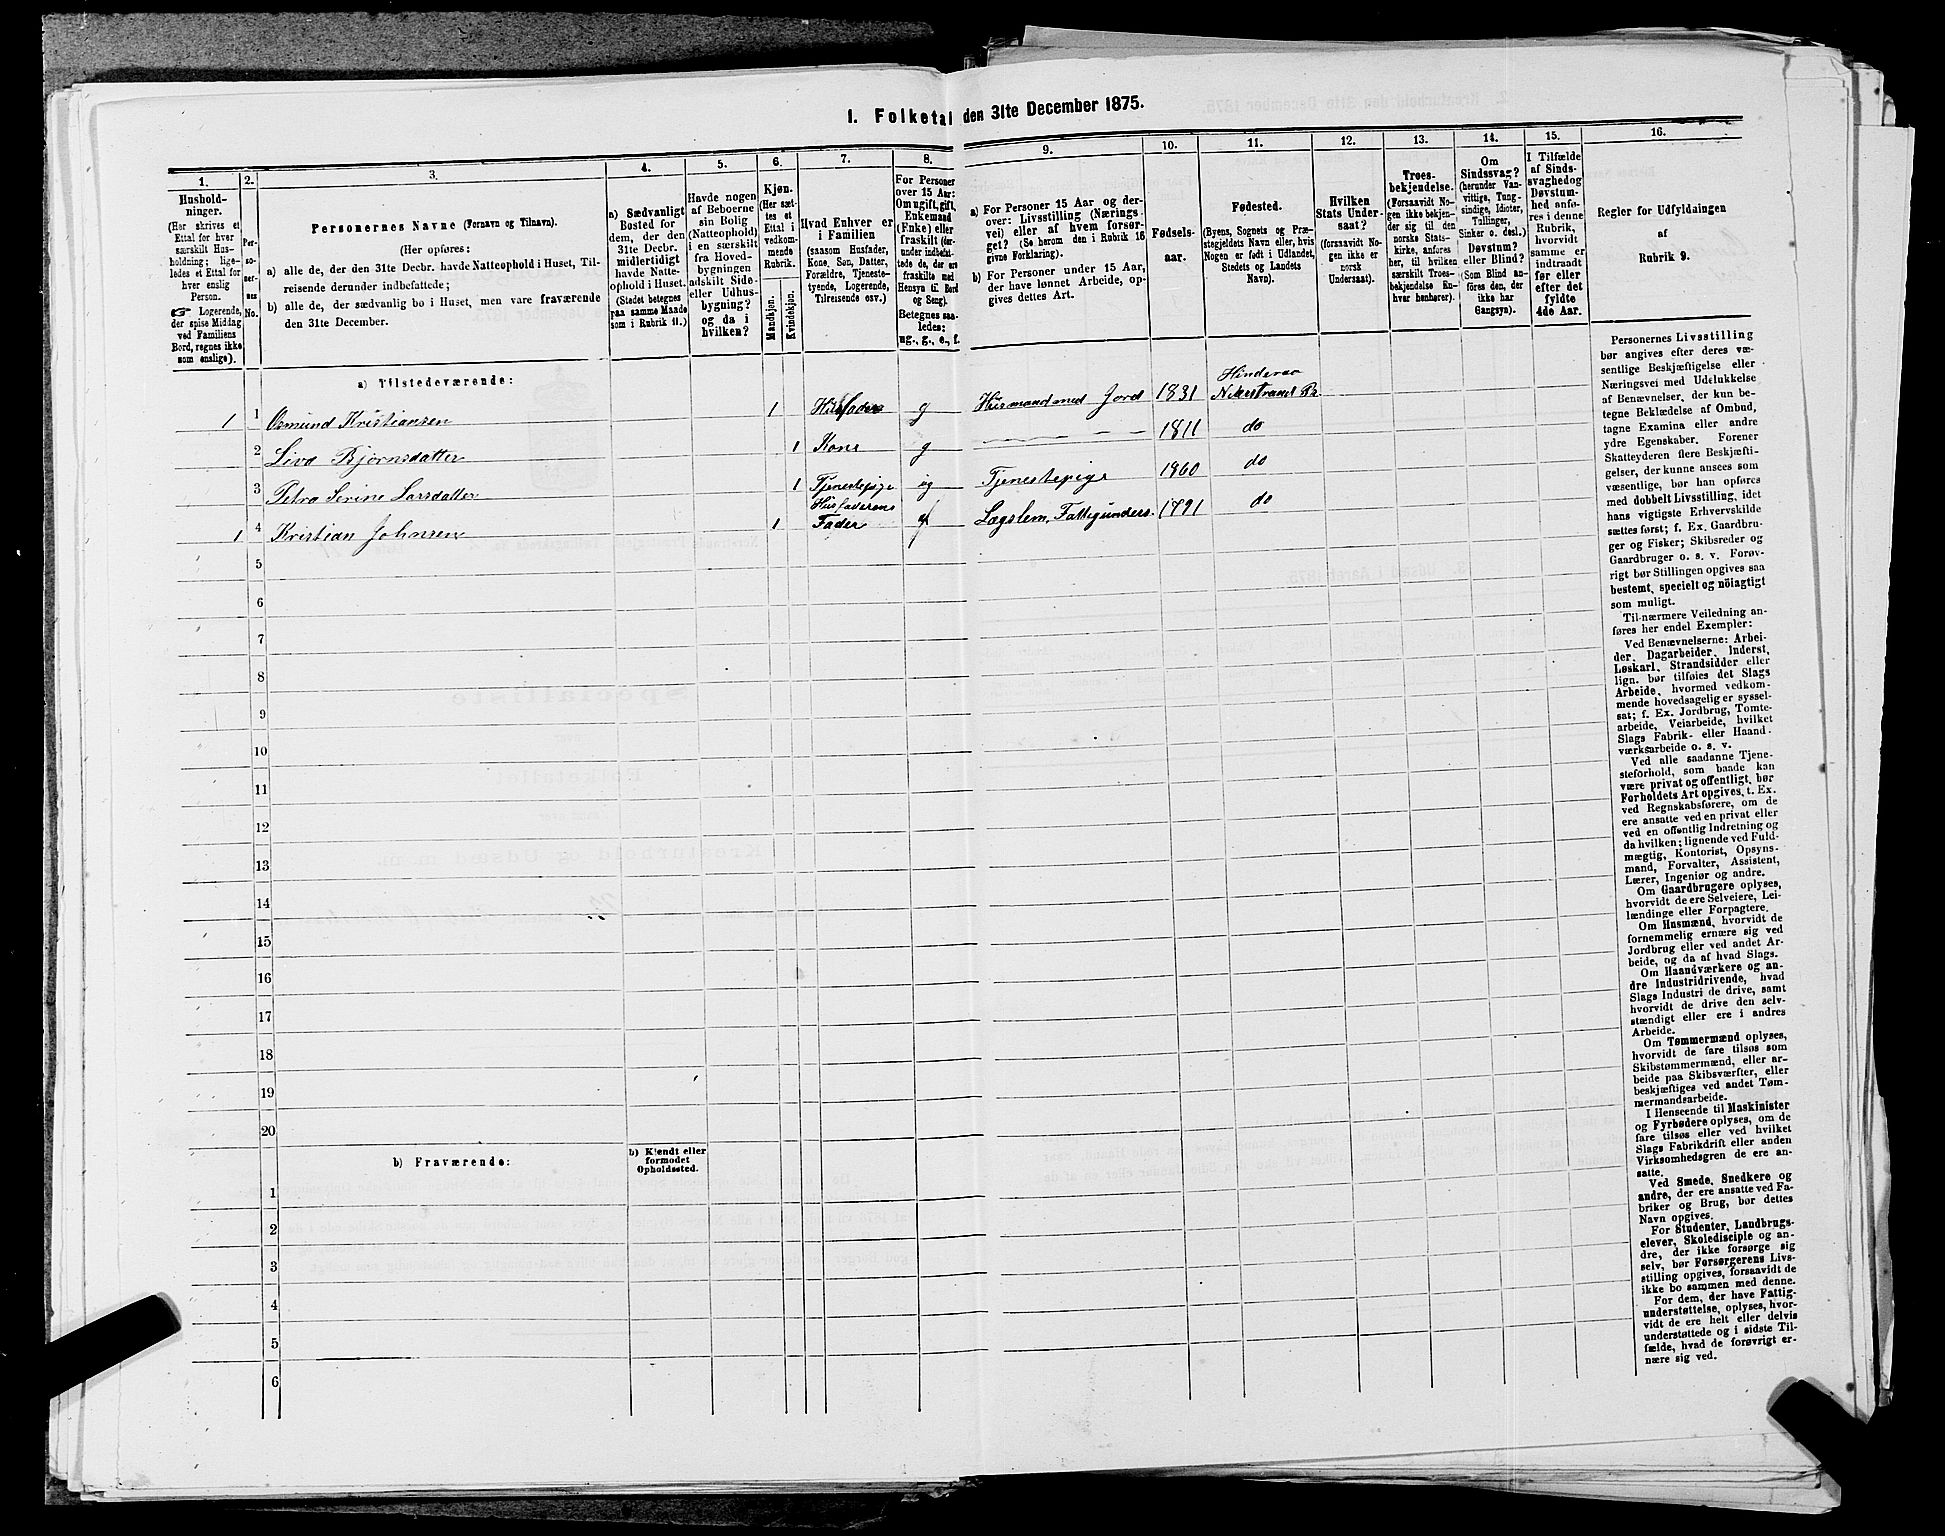 I. Folketal den 31te December 1875.
1.
Hushold-
ninger.
(Her skrives et
Ettal for hver
særskilt Hus-
holdning; lige-
ledes et Ettal for
hver enslig
Person.
☞ Logerende,
der spise Middag
ved Familiens
Bord, regnes ikke
som enslige).
2.
Per-
so-
ner-
nes
No.
3.
Personernes Navne (Fornavn og Tilnavn).
(Her opføres:
a) alle de, der den 31te Decbr. havde Natteophold i Huset, Til-
reisende derunder indbefattede;
b) alle de, der sædvanlig bo i Huset, men vare fraværende
den 31te December.
4.
a) Sædvanligt
Bosted for
dem, der den
31te Decbr.
midlertidigt
havde Natte-
ophold i Huset.
(Stedet betegnes
paa samme Maade
som i Rubrik 11.)
5.
Havde nogen
af Beboerne
sin Bolig
(Natteophold)
i en særskilt
fra Hoved-
bygningen
adskilt Side-
eller Udhus-
bygning?
og da i
hvilken?
6.
Kjøn.
(Her sæt-
tes et
Ettal i
vedkom-
mende
Rubrik.
Mandkjøn.
Kvindekjøn.
7.
Hvad Enhver er
i Familien
(saasom Husfader,
Kone, Søn, Datter,
Forældre, Tjeneste-
tyende, Logerende,
Tilreisende osv.)
8.
For Personer
over 15 Aar:
Om ugift, gift,
Enkemand
(Enke) eller
fraskilt (der-
under indbefat-
tede de, der ere
fraskilte med
Hensyn til Bord
og Seng).
Betegnes saa-
ledes:
ug., g., e., f.
9.
a) For Personer 15 Aar og der-
over: Livsstilling (Nærings-
vei) eller af hvem forsør-
get? (Se herom den i Rubrik 16
givne Forklaring).
b) For Personer under 15 Aar,
der have lønnet Arbeide, op-
gives dettes Art.
10.
Fødsels-
aar.
11.
Fødested.
(Byens, Sognets og Præ-
stegjeldets Navn eller, hvis
Nogen er født i Udlandet,
Stedets og Landets
Navn).
12.
Hvilken
Stats Under-
saat?
(forsaavidt No-
gen ikke er
norsk
Undersaat).
13.
Troes-
bekjendelse.
(Forsaavidt No-
gen ikke bekjen-
der sig til den
norske Stats-
kirke, anføres
her, til hvilken
særskilt Troes-
bekjendelse En-
hver henhører).
14.
Om
Sindssvag?
(herunder Van-
vittige, Tung-
sindige, Idioter,
Tullinger,
Sinker o. desl.)
Døvstum?
eller Blind?
(Som Blind an-
føres den, der
ikke har
Gangsyn).
15.
I Tilfælde
af Sinds-
svaghed og
Døvstum-
hed anfø-
res i denne
Rubrik,
hvorvidt
samme er
indtraadt
før eller
efter det
fyldte
4de Aar.
16.
Regler for Udfyldningen
af
Rubrik 9.
a) Tilstedeværende:
1 1 Osmund Kristiansen 1 Husfader g Husmand med Jord 1831 Hinderaa
Nederstrand Pr.
2 Liva Bjørnsdatter 1 Kone g — — — 1811 do
3 Petra Serine Larsdatter 1 Tjenestepige ug Tjenestepige 1860 do
1 4 Kristian Johnsen 1 Husfaderens
Fader Lægslem, Fattigunders. 1791 do
5
6
7
8
9
10
11
12
13
14
15
16
17
18
19
20
b) Fraværende:
b) Kjendt eller
formodet
Opholdssted.
1
2
3
4
5
6
Personernes Livsstilling
bør angives efter deres væ-
sentlige Beskjæftigelse eller
Næringsvei med Udelukkelse
af Benævnelser, der kun be-
tegne Beklædelse af Ombud,
tagne Examina eller andre
ydre Egenskaber. Forener
Skatteyderen flere Beskjæfti-
gelser, der kunne ansees som
væsentlige, bør han opføres
med dobbelt Livsstilling, idet
hans vigtigste Erhvervskilde
sættes først; f. Ex. Gaardbru-
ger og Fisker; Skibsreder og
Gaardbruger o. s. v. Forøv-
rigt bør Stillingen opgives saa
bestemt, specielt og nöiagtigt
som muligt.
Til nærmere Veiledning an-
føres her endel Exempler:
Ved Benævnelserne: Arbei-
der, Dagarbeider, Inderst,
Løskarl, Strandsidder eller
lign. bør tilføies det Slags
Arbeide, hvormed vedkom-
mende hovedsagelig er syssel-
sat; f. Ex. Jordbrug, Tomte-
arbeide, Veiarbeide, hvilket
Slags Fabrik- eller Haand-
værksarbeide o. s. v.
Ved alle saadanne Tjene-
steforhold, som baade kan
være privat og offentligt, bør
Forholdets Art opgives, t. Ex.
ved Regnskabsførere, om de
ere ansatte ved en privat eller
ved en offentlig Indretning og
da hvilken; lignende ved Fuld-
mægtig, Kontorist, Opsyns-
mand, Forvalter, Assistent,
Lærer, Ingeniør og andre.
Om Gaardbrugere oplyses,
hvorvidt de ere Selveiere, Lei-
lændinge eller Forpagtere.
Om Husmænd, hvorvidt de
fornemmelig ernære sig ved
Jordbrug eller ved andet Ar-
beide, og da af hvad Slags.
Om Haandværkere og an-
dre Industridrivende, hvad
Slags Industri de drive, samt
hvorvidt de drive den selv-
stændigt eller ere i andres
Arbeide.
Om Tømmermænd oplyses,
hvorvidt de fare tilsøs som
Skibstømmermænd, eller ar-
beide paa Skibsværfter, eller
beskjæftiges ved andet Tøm-
mermandsarbeide.
I Henseende til Maskinister
og Fyrbødere oplyses, om de
fare tilsøs eller ved hvilket
Slags Fabrikdrift eller anden
Virksomhedsgren de ere an-
satte.
Ved Smede, Snedkere og
andre, der ere ansatte ved Fa-
briker og Brug, bør dettes
Navn opgives.
For Studenter, Landbrugs-
elever, Skoledisciple og an-
dre, der ikke forsørge sig
selv, bør Forsørgerens Livs-
stilling opgives, forsaavidt de
ikke bo sammen med denne.
For dem, der have Fattig-
understøttelse, oplyses, hvor-
vidt de ere helt eller delvis
understøttede og i sidste Til-
fælde, hvad de forøvrigt er-
nære sig ved.